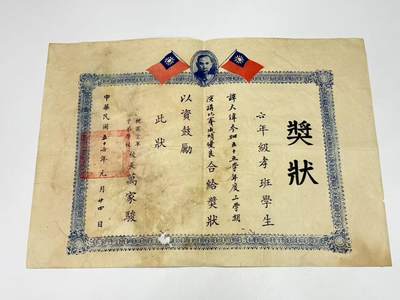 獎狀
六年級孝班學生
譚大偉參加五十五學年度上學期
演講比賽成績優良合給獎狀
以資鼓勵
此狀
校長 萬家駿
中華民國五十六年元月廿四日